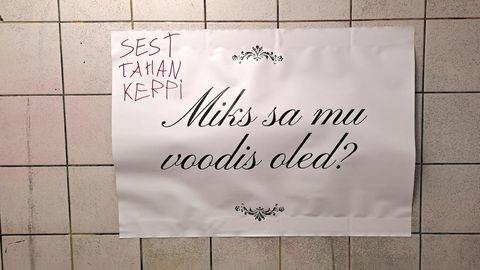 SEST
TAHAN
KEPPI
Miks sa mu
voodis oled?